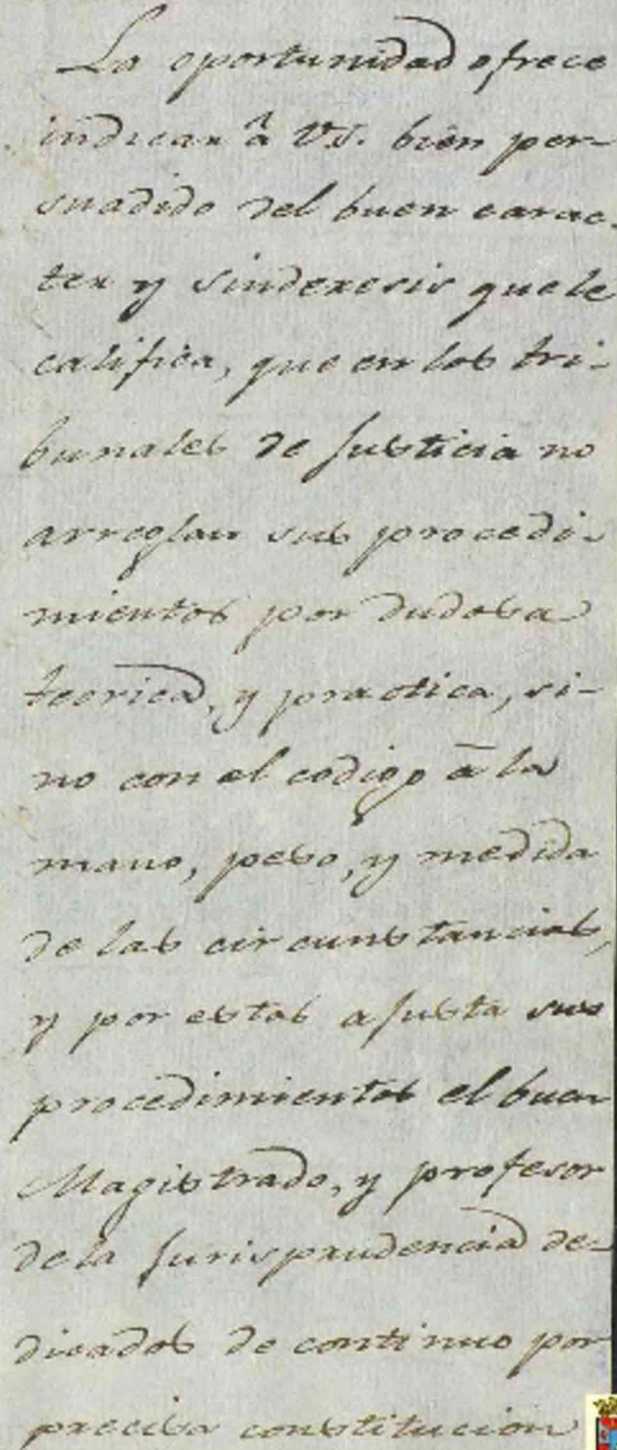 La oportunidad ofrece
indicar â VS. bien per-
suadido del buen carac-
ter y sinderesis que le
califica, que en los tri-
bunales de Justicia no
arreglan sus procedi-
mientos por dudosa
teorica, y practica, si-
no con el codigo â la
mano, peso, y medida
de las circunstancias,
y por estas ajusta sus
procedimientos el buen
Magistrado, y profesor
de la Jurisprudencia de-
dicados de continuo por
precisa constitucion